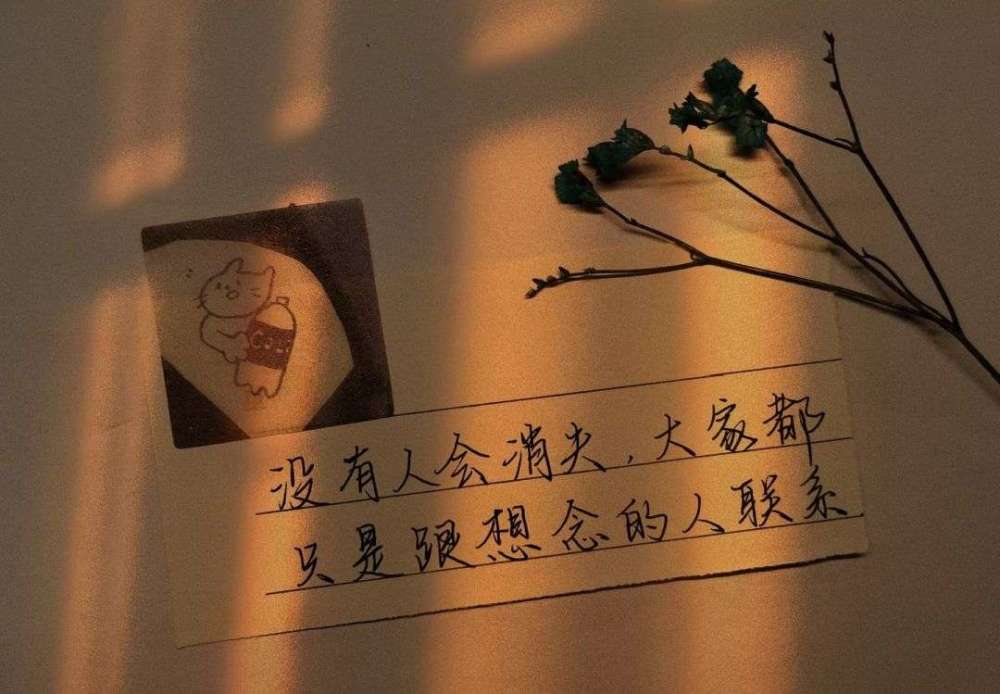 没有人会消失，大家都
只是跟想念的人联系